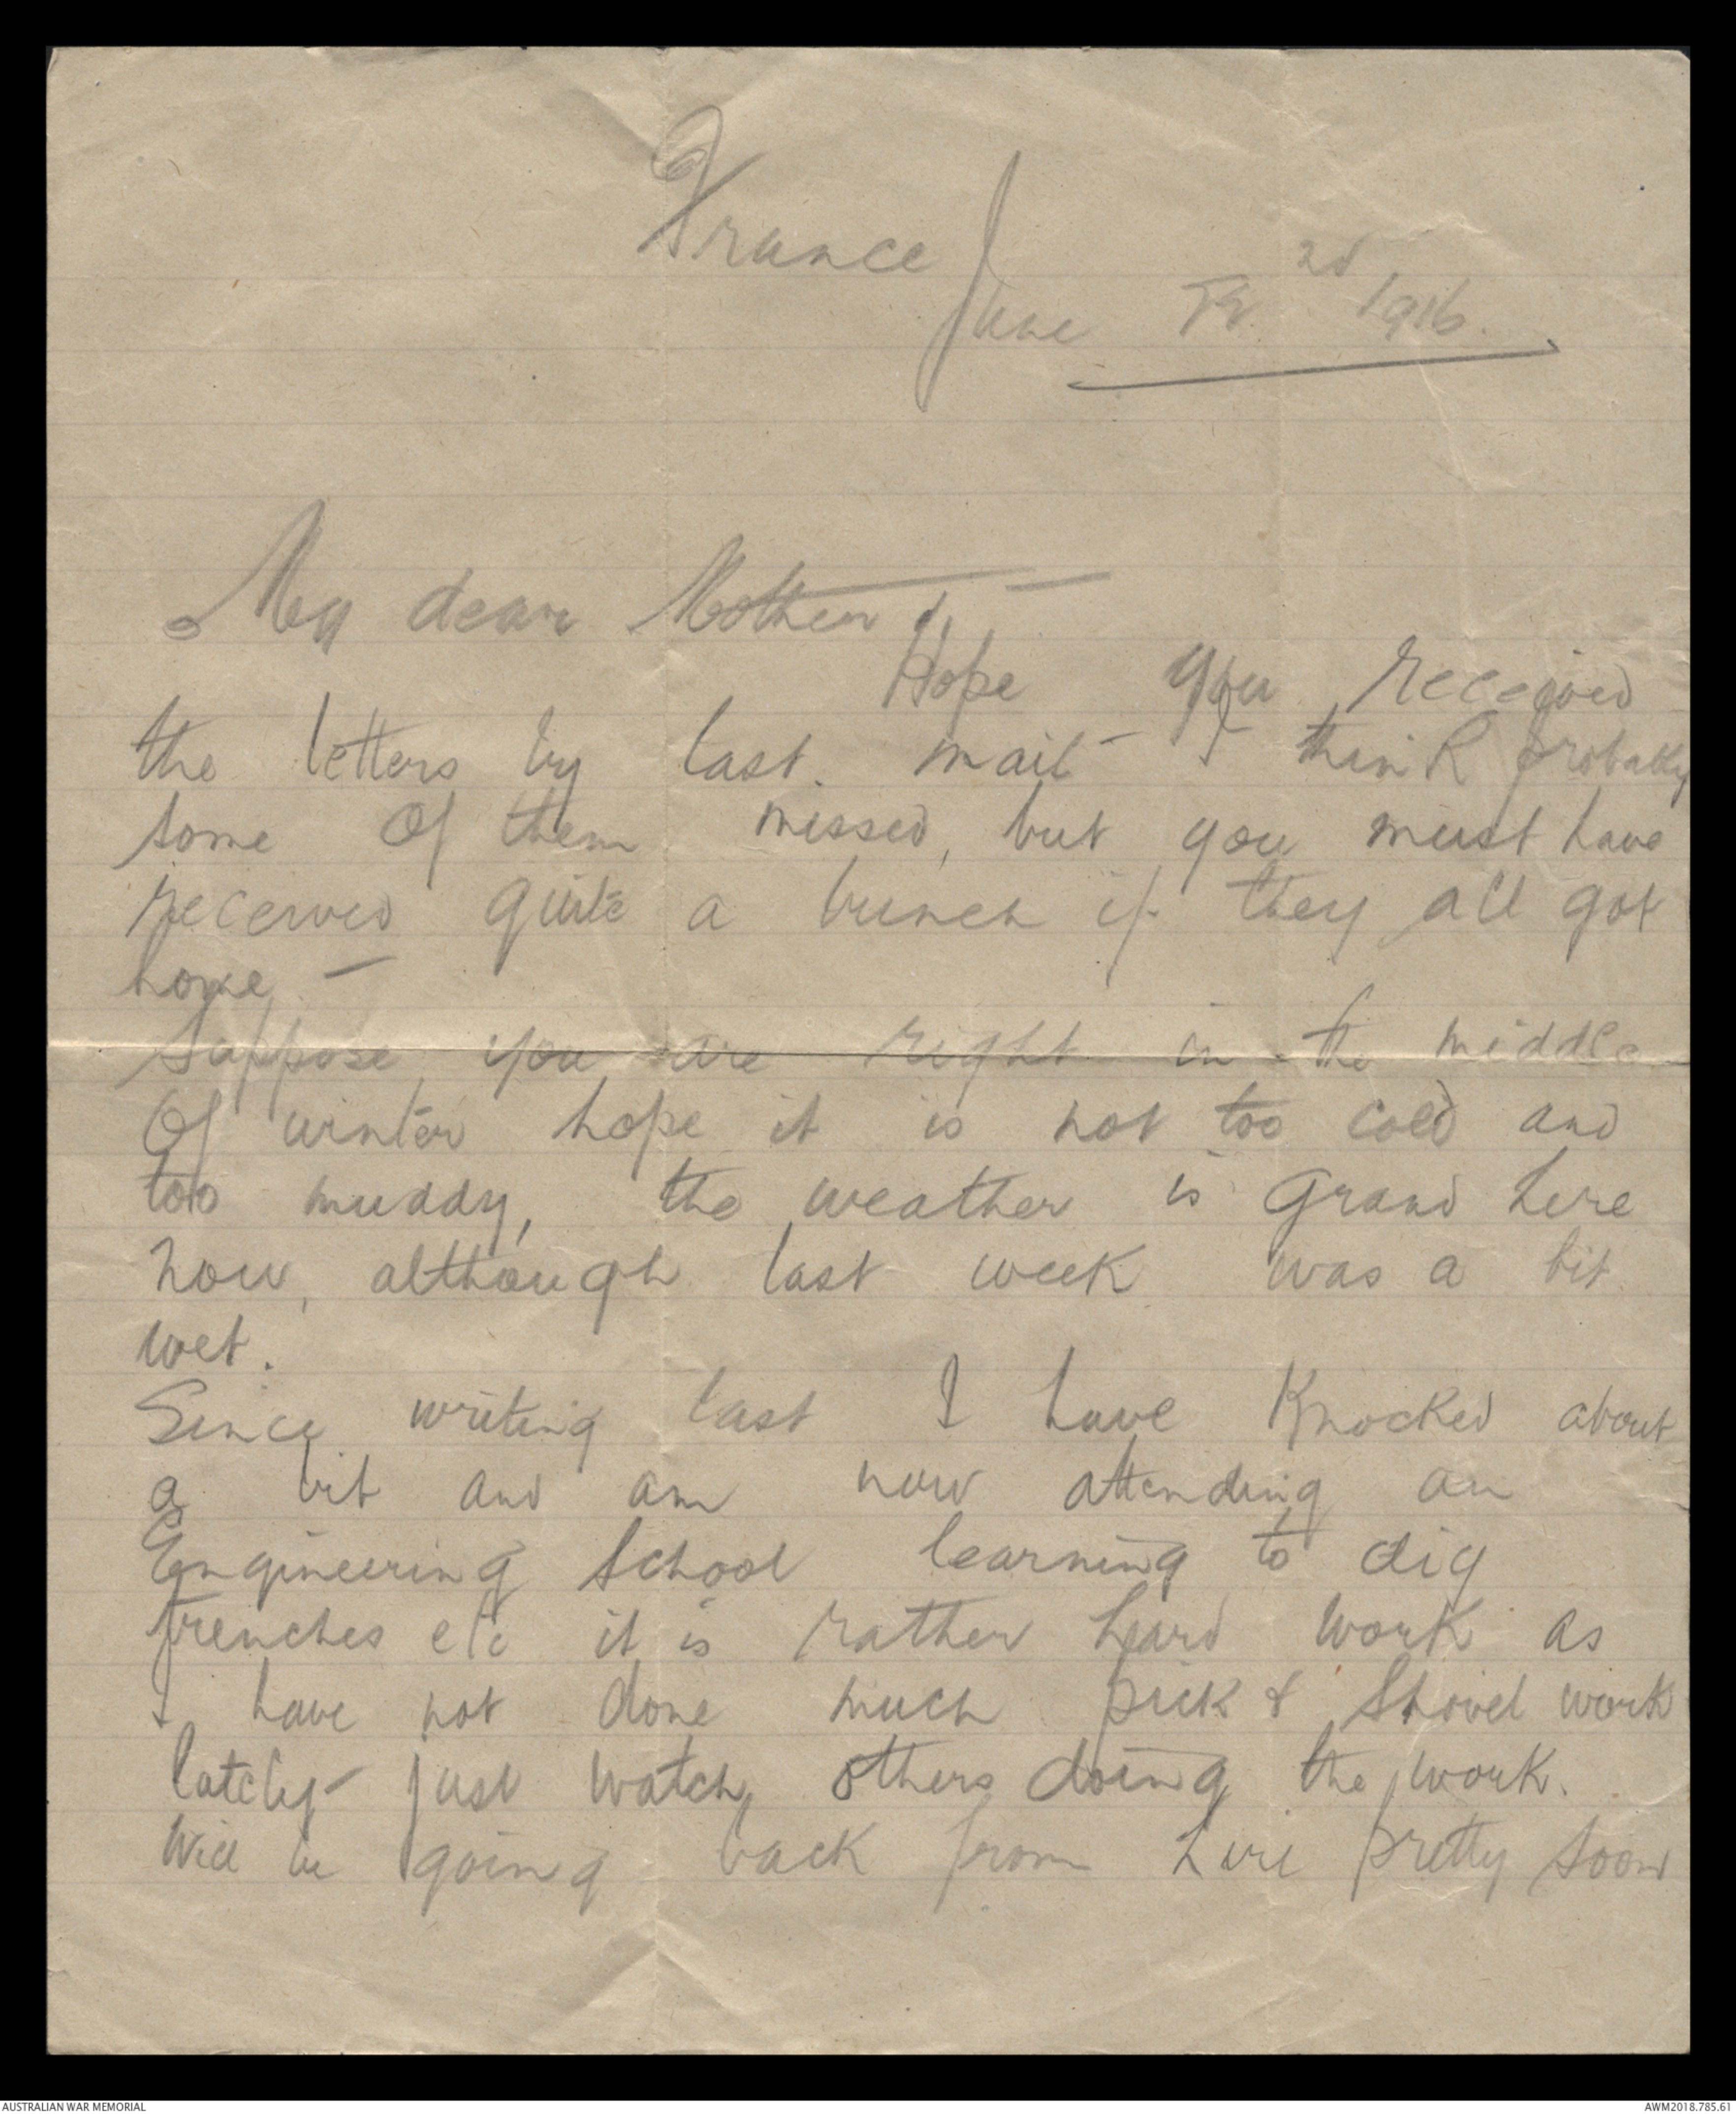 France
June 1916.
My dear Mother,
Hope you received
the letters by last mail - I think probably
some of them missed, but you must have
received quite a bunch if they all got
home -
Suppose you are right in the middle
of winter hope it is not too cold and
too muddy, the weather is grand here
now, although last week was a bit
wet.
Since writing last I have knocked about
a bit and am now attending an
Engineering School learning to dig
trenches etc it is rather hard work as
I have not done much pick & shovel work
lately - just watch others doing the work.
Will be going back from here pretty soon
AUSTRALIAN WAR MEMORIAL
AWM2018.785.61